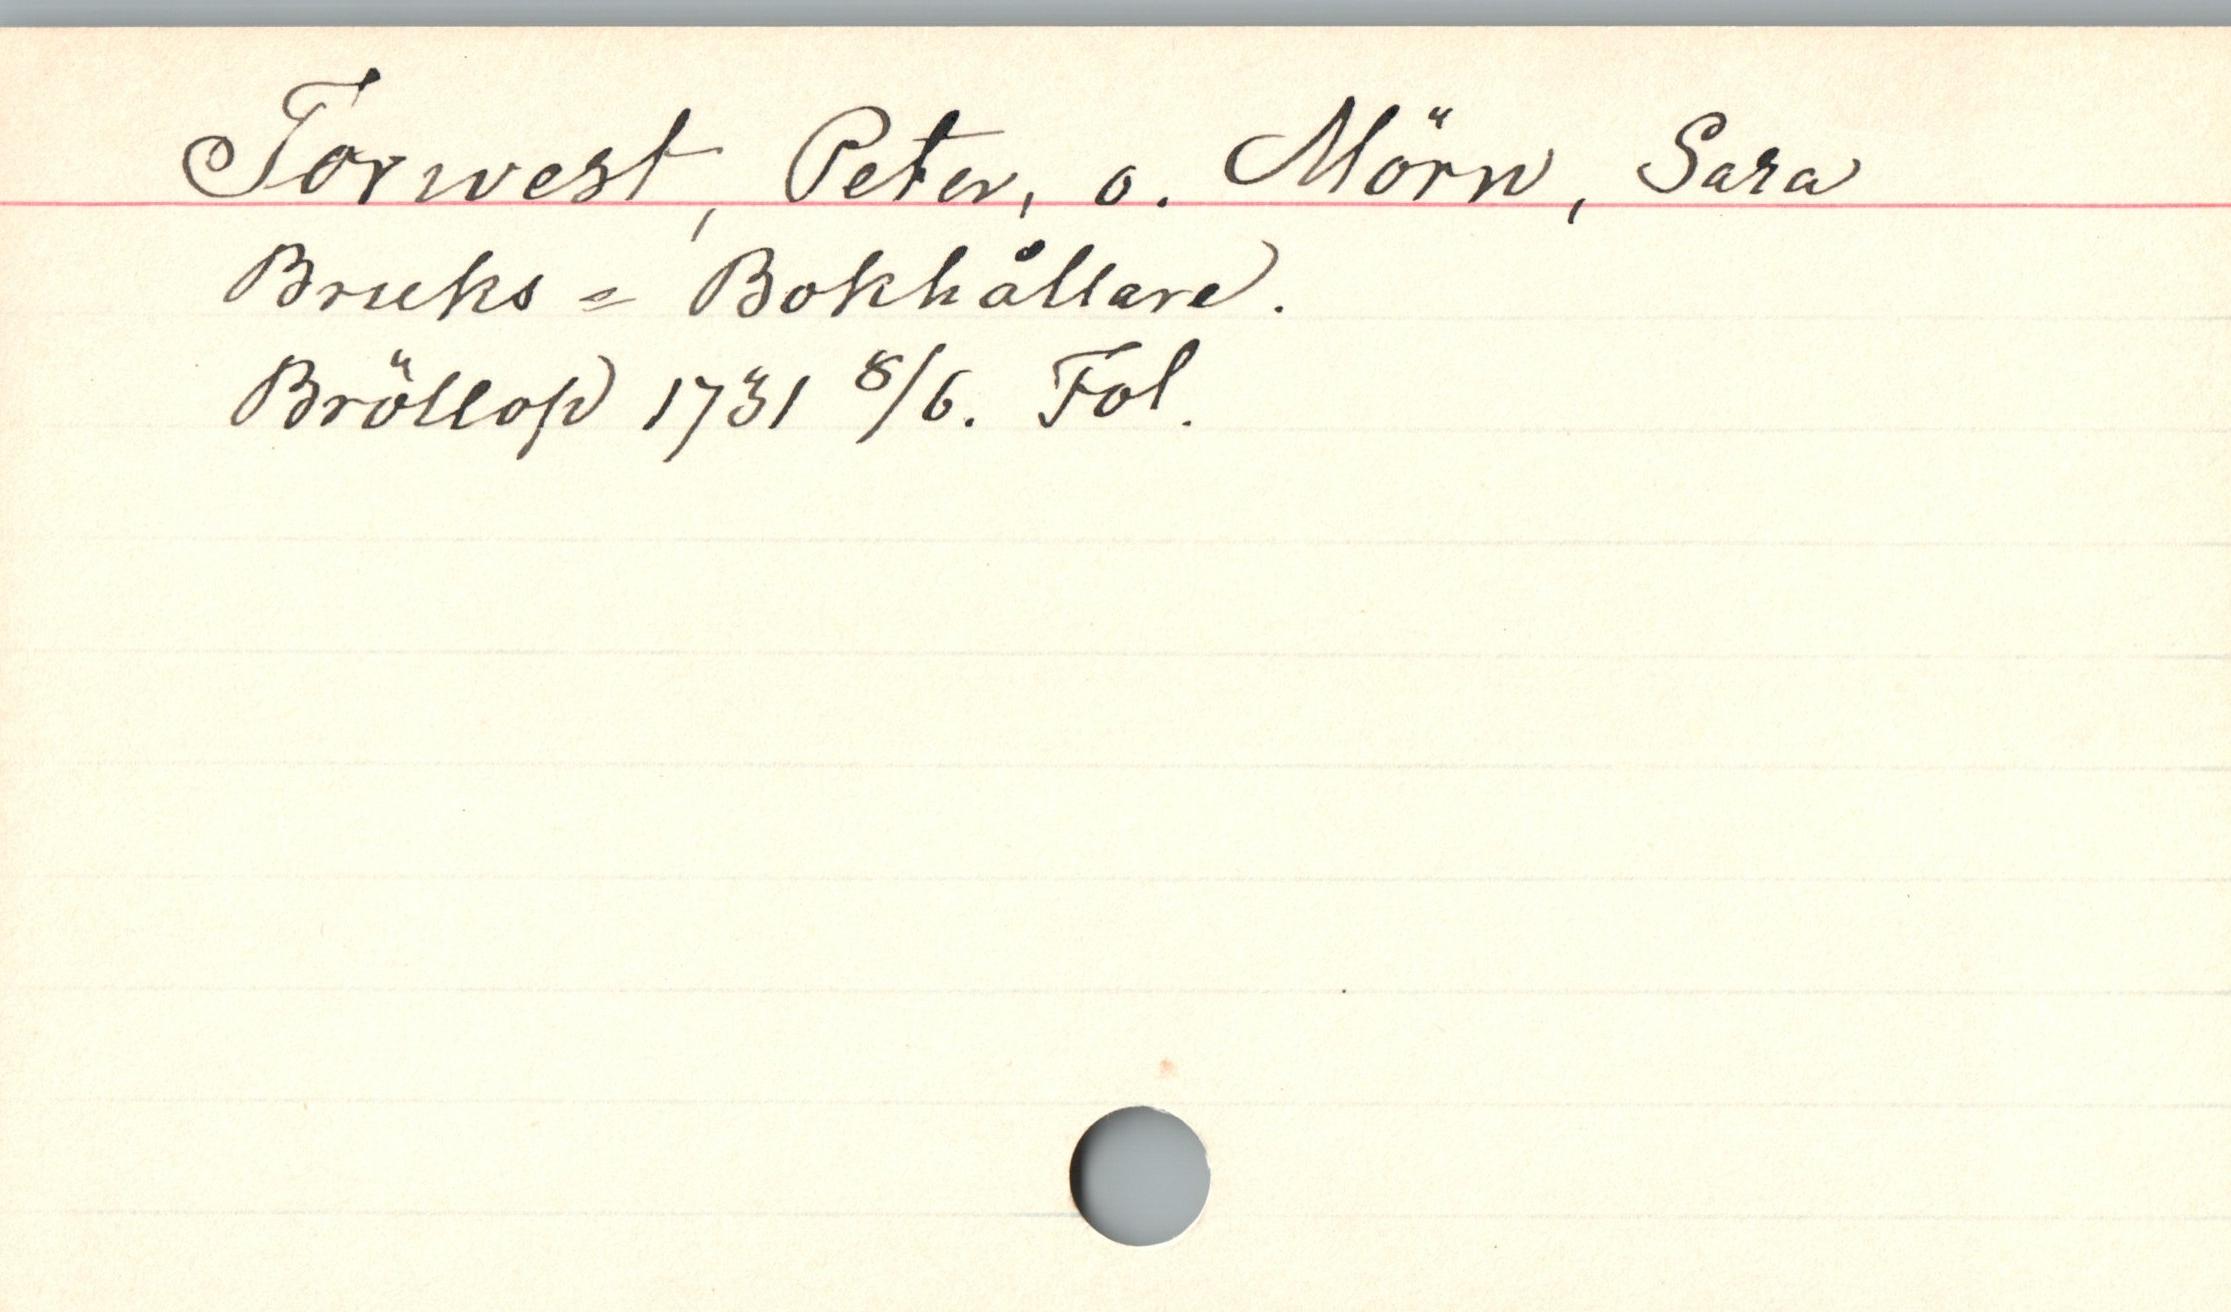 Torwest, Peter, o. Mörn, Sara
Bruks = Bokhållare.
Bröllop 1731 8/6. Fol.